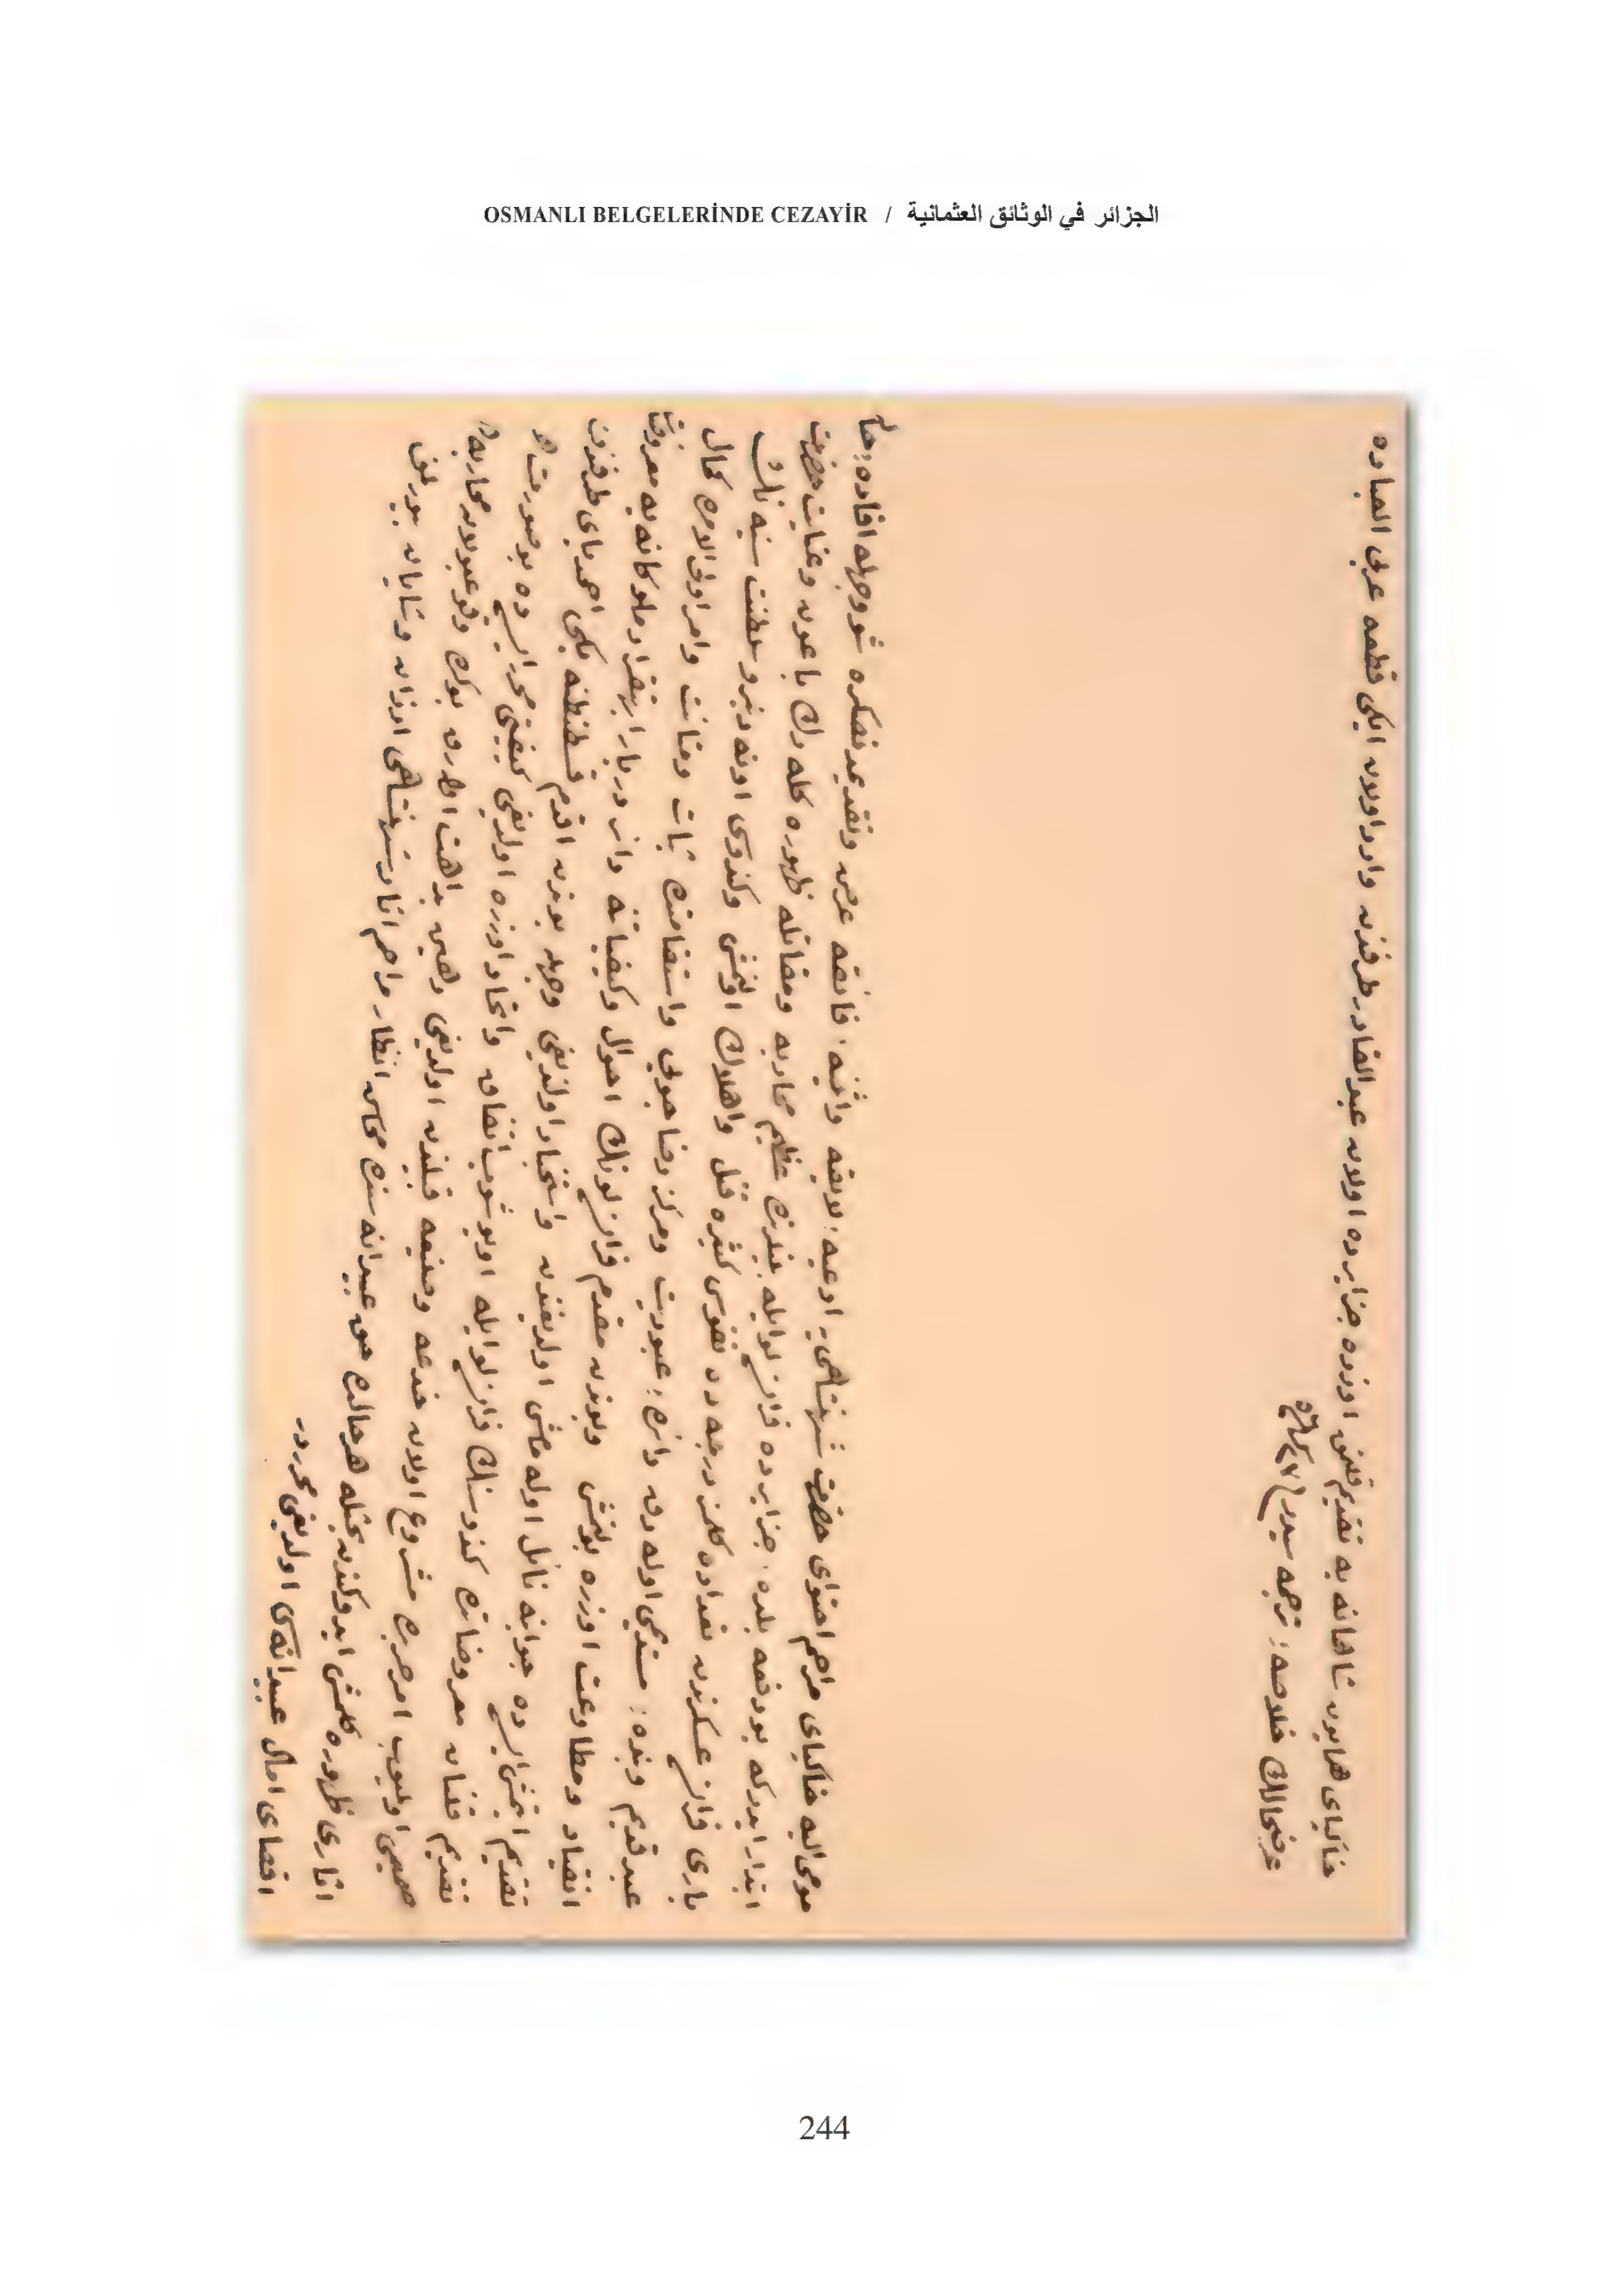 OSMANLI BELGELERİNDE CEZAYİR / الجزائر في الوثائق العثمانية
خاكپاى همايون شاهانه يه تقديم قلنمق اوزره جزايرده اولان عبدالقادر طرفندن وارد اولان ايكى قطعه عربى العباره
عرضحالك خلاصهٔ ترجمه سيدر
مومى اليه خاكپاى مراحم احتواى حضرت شهنشاهى يه ادعيهٔ لايقه واثنيهٔ فائقه عرض وتقديمندنصكره شو وجهله افادهٔ حال
ابتدار ايدر كه بو دفعه بلدهٔ جزايرده فرانسه لو ايله بيننده عظيم محاربه ومقاتله ظهوره كله رك با عون وعنايت حضرت
بارى فرانسه عسكرندن تعداده كلمز درجه ده نفوس كثيره قتل واهلاك اولنمش وكندوسى اوته دنبرو سلطنت سنيه نك
عبد قديم وبندهٔ مستديمى اوله رق دائرهٔ عبوديت ومركز رضاجويى واستقامتده ثبات ومتانت وامر اولى الامره كمال
انقياد ومطاوعت اوزره بولنمش وبوندن مقدم فرانسه لونك احوال وكيفياتنه دائر دربار شوكتقرار ملوكانه يه معروضات
تقديم ايتمش ايسه ده جوابنه نائل اوله مامش اولديغندن واستخبار اولنديغى وجهله بوندن اقدم قسنطينه بكى احمد باى طرفندن
تقديم قلنان معروضاتده كندوسنك فرانسه لو ايله اويوشوب اتفاق واتحاد اوزره اولديغى كيفيتى محرر ايسه ده بو صورت
صميمى اولميوب امر حربده مشروع اولان خدعه وصنيعه قبيلندن اولديغى رهين بداهت اوله رق بونك وقوعبولان محاربه
اثارى ظهوره كلمش ايدوكندن بحثله هر حالده حق عبيدانه سنده محاسن انظار مراحم اثار شهنشاهى ارزان وشايان بيورلمق
اقصاى امال عبيدانه سى اولديغى محرردر
244